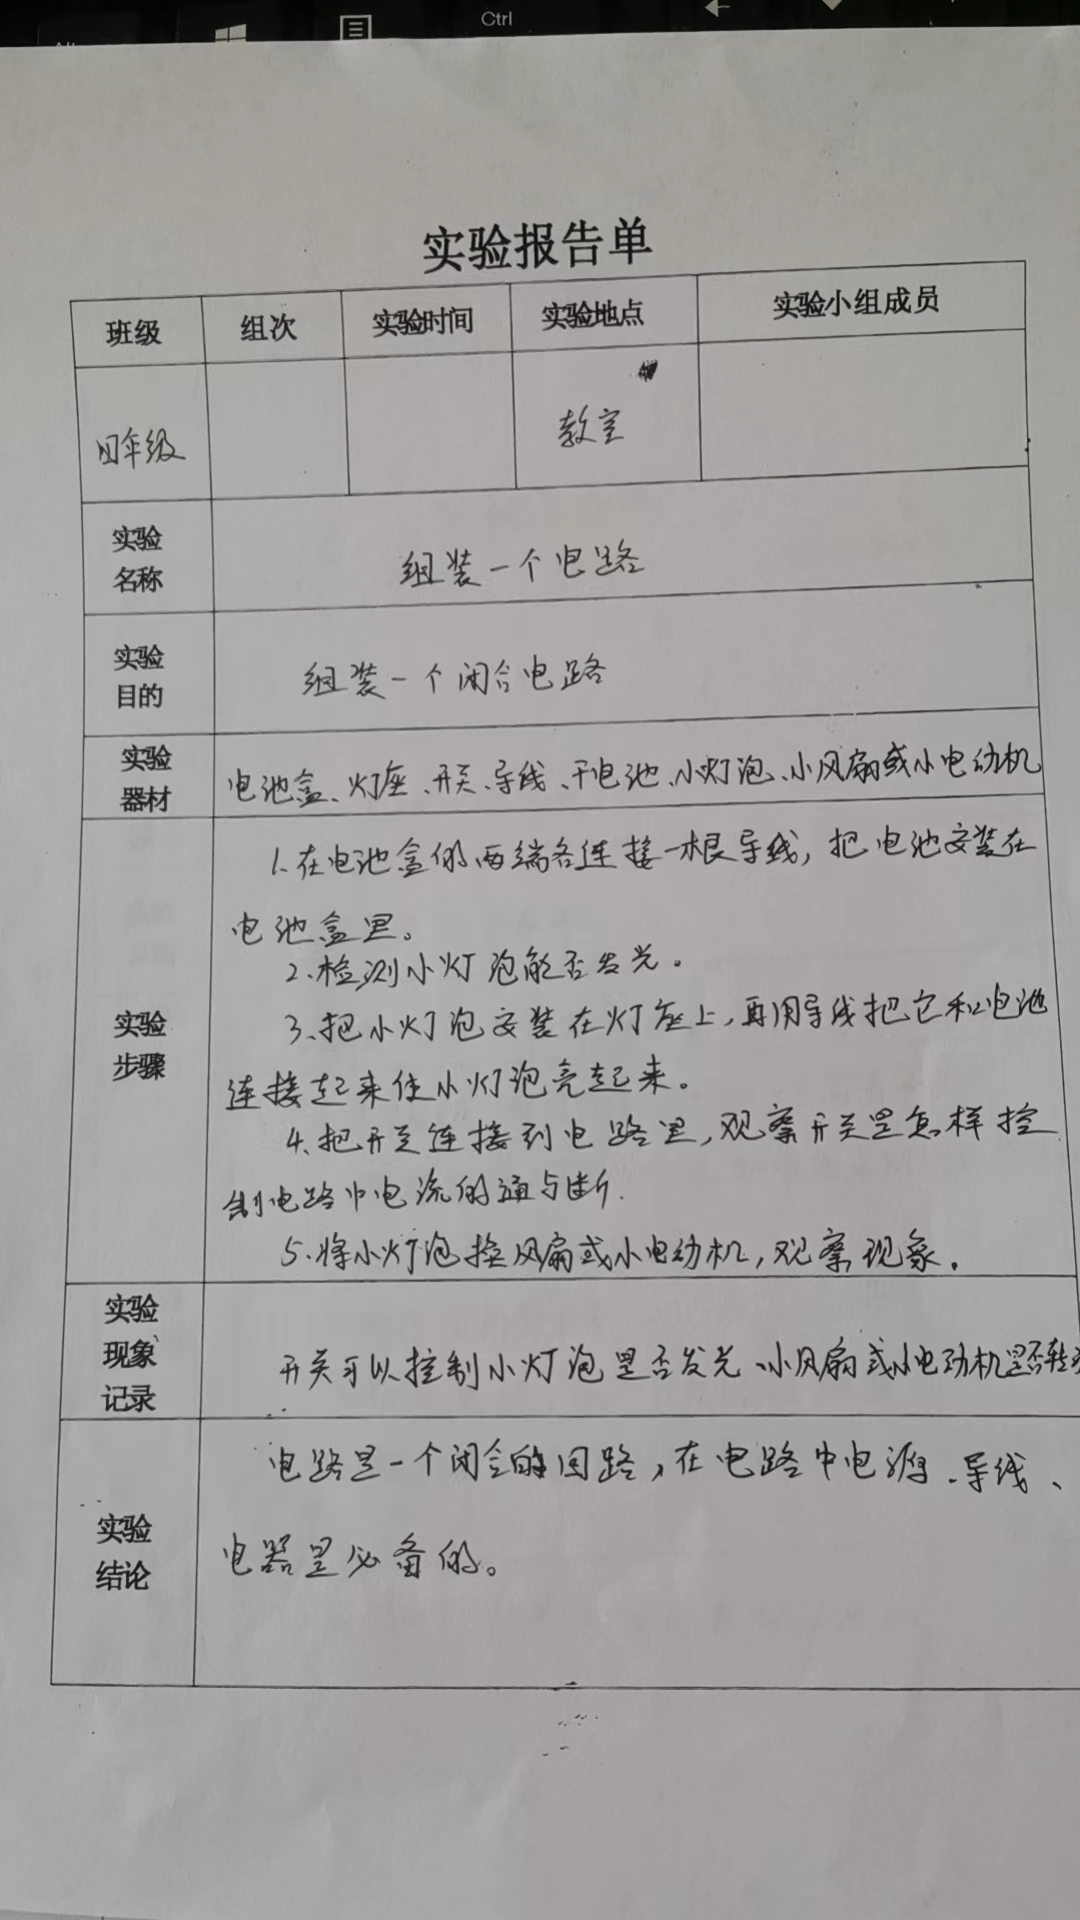 Ctrl
实验报告单
班级 组次 实验时间 实验地点 实验小组成员
四年级 教室
实验
名称
组装一个电路
实验
目的
组装一个闭合电路
实验
器材
电池盒、灯座、开关、导线、干电池、小灯泡、小风扇或小电动机
实验
步骤
1.在电池盒的两端各连接一根导线,把电池安装在
电池盒里。
2.检测小灯泡能否发光。
3.把小灯泡安装在灯座上,再用导线把它和电池
连接起来使小灯泡亮起来。
4.把开关连接到电路里,观察开关是怎样控
制电路中电流的通与断.
5.将小灯泡换风扇或小电动机,观察现象。
实验
现象
记录
开关可以控制小灯泡是否发光、小风扇或小电动机是否转
实验
结论
电路是一个闭合的回路,在电路中电源、导线、
电器是必备的。